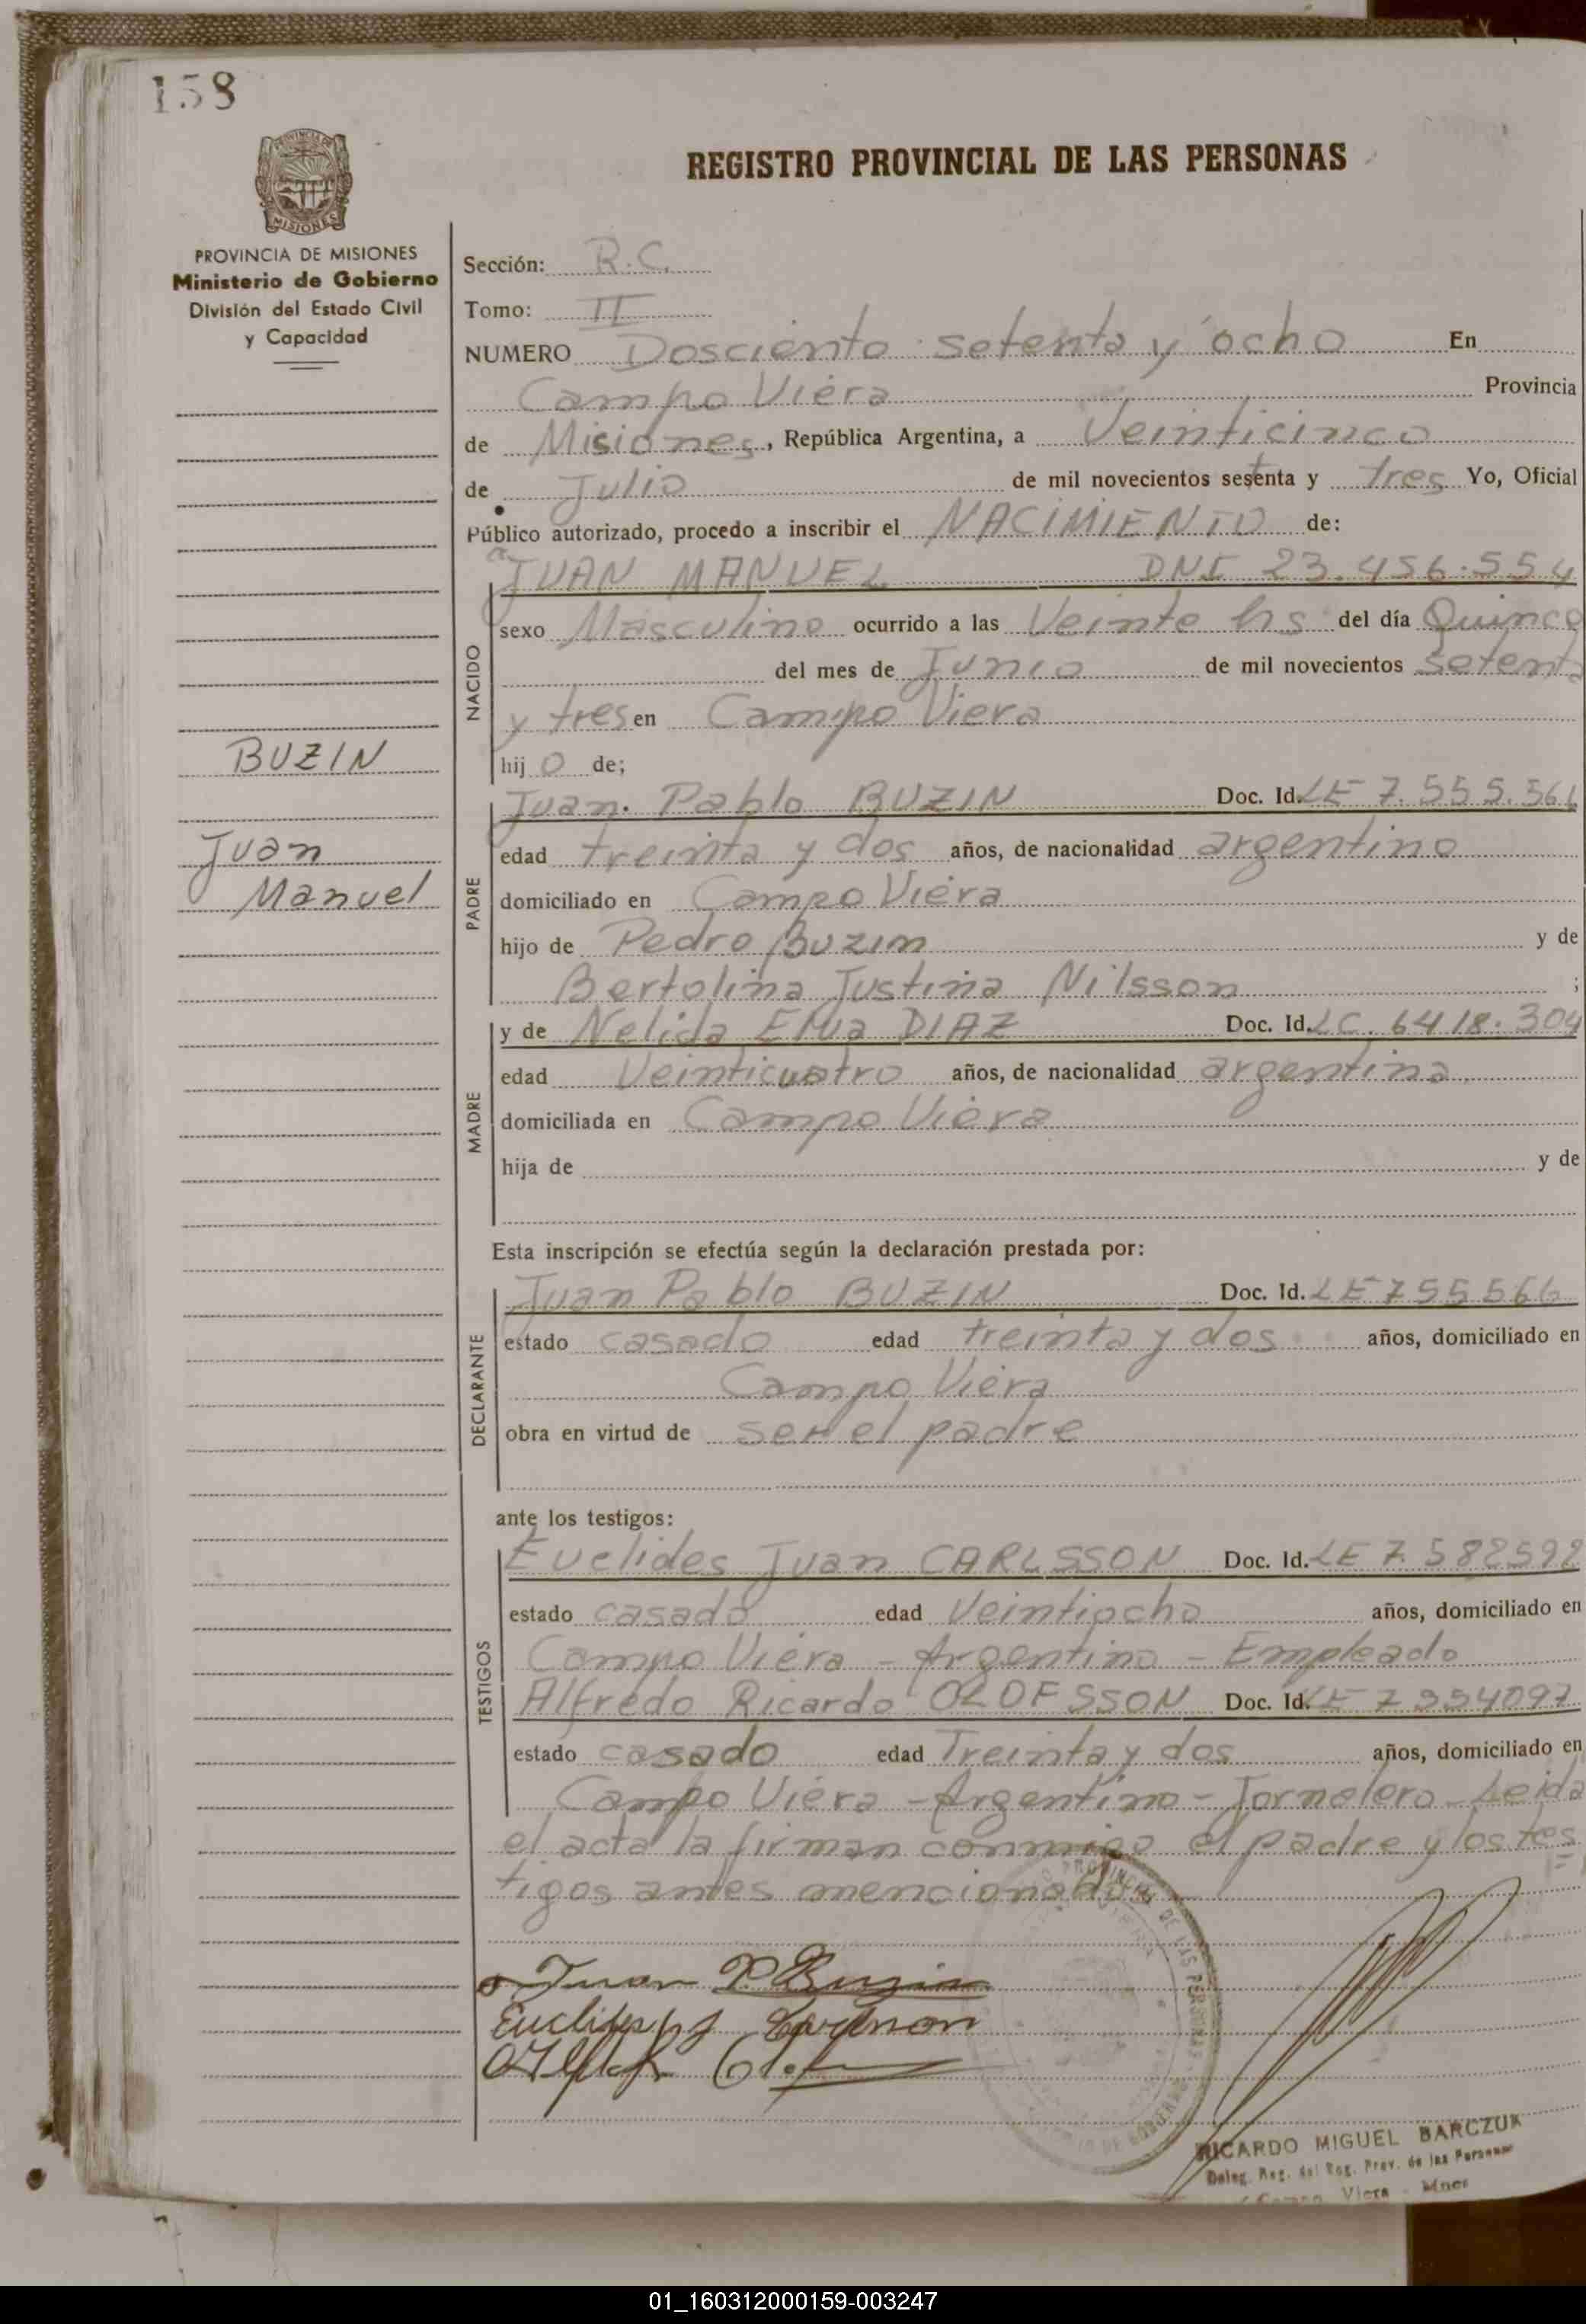 158
REGISTRO PROVINCIAL DE LAS PERSONAS
PROVINCIA DE MISIONES
Ministerio de Gobierno
División del Estado Civil
y Capacidad
Sección: R.C.
Tomo: II
NUMERO Dosciento setenta y ocho En
Campo Viera Provincia
de Misiones, República Argentina, a Veinticinco
de Julio de mil novecientos setenta y tres Yo, Oficial
Público autorizado, procedo a inscribir el NACIMIENTO de:
JUAN MANUEL DNI 23.456.554
NACIDO
sexo Masculino ocurrido a las Veinte hs del día Quince
del mes de Junio de mil novecientos setenta
y tres en Campo Viera
hijo de;
BUZIN
Juan
Manuel
PADRE
Juan Pablo BUZIN Doc. Id. LE 7.555.566
edad treinta y dos años, de nacionalidad argentino
domiciliado en Campo Viera
hijo de Pedro Buzin y de
Bertolina Justina Nilsson ;
MADRE
y de Nelida DIAZ Doc. Id. LC. 6418.304
edad Veinticuatro años, de nacionalidad argentina
domiciliada en Campo Viera
hija de y de
Esta inscripción se efectúa según la declaración prestada por:
DECLARANTE
Juan Pablo BUZIN Doc. Id. LE 755566
estado casado edad treinta y dos años, domiciliado en
Campo Viera
obra en virtud de ser el padre
ante los testigos:
TESTIGOS
Euclides Juan CARLSSON Doc. Id. LE 7.582592
estado casado edad Veintiocho años, domiciliado en
Campo Viera - Argentino - Empleado
Alfredo Ricardo OLOFSSON Doc. Id. LE
estado casado edad Treinta y dos años, domiciliado en
Campo Viera - Argentino - Jornalero - Leida
el acta la firman conmigo el padre y los tes
tigos antes mencionados
Juan P. Buzin
RICARDO MIGUEL BARCZUK
Deleg. Reg. del Reg. Prov. de las Personas
Campo Viera - Mnes
01_160312000159-003247